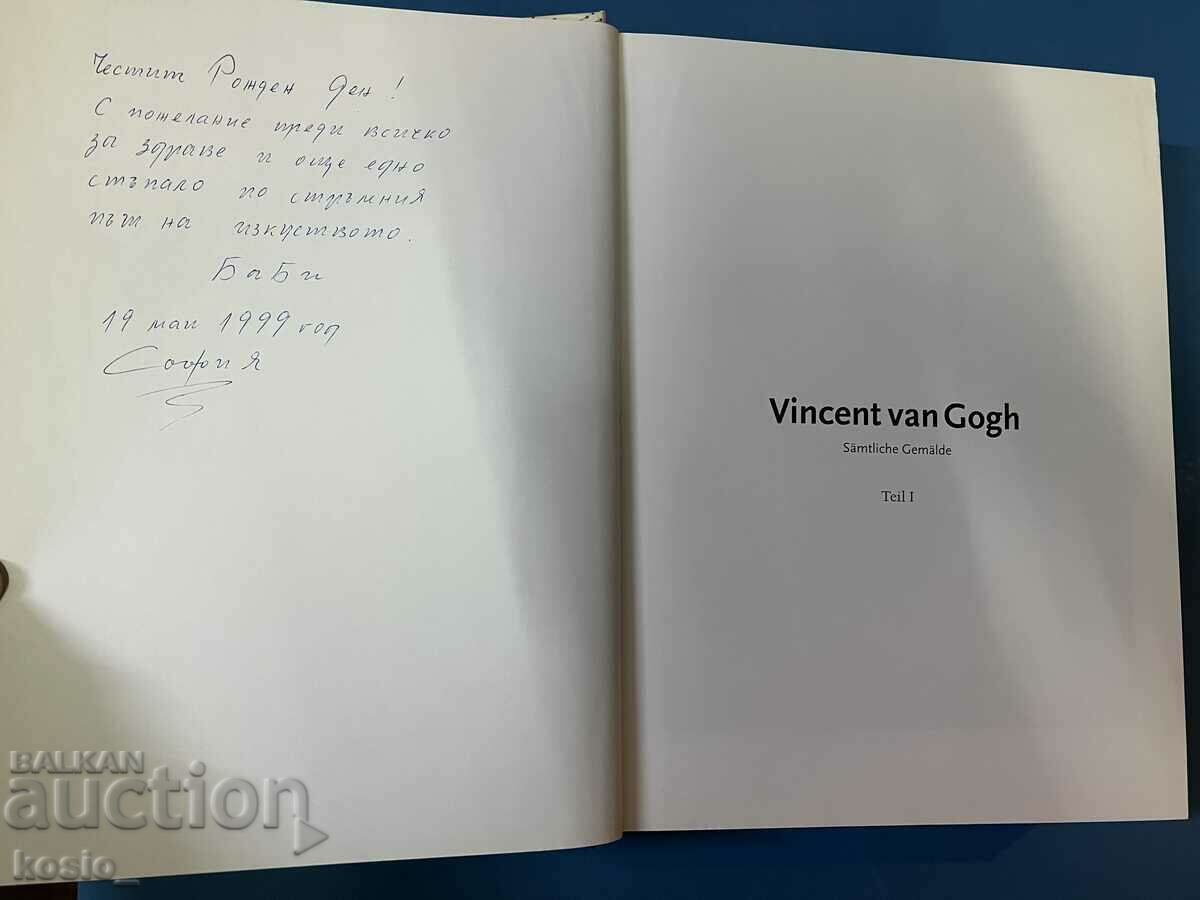 Честит Рожден Ден!
С пожелание преди всичко
за здраве и още едно
стъпало по стръмния
път на изкуството.
БаБи
19 май 1999 год
София
Vincent van Gogh
Sämtliche Gemälde
Teil I
BALKAN
auction
kosio_